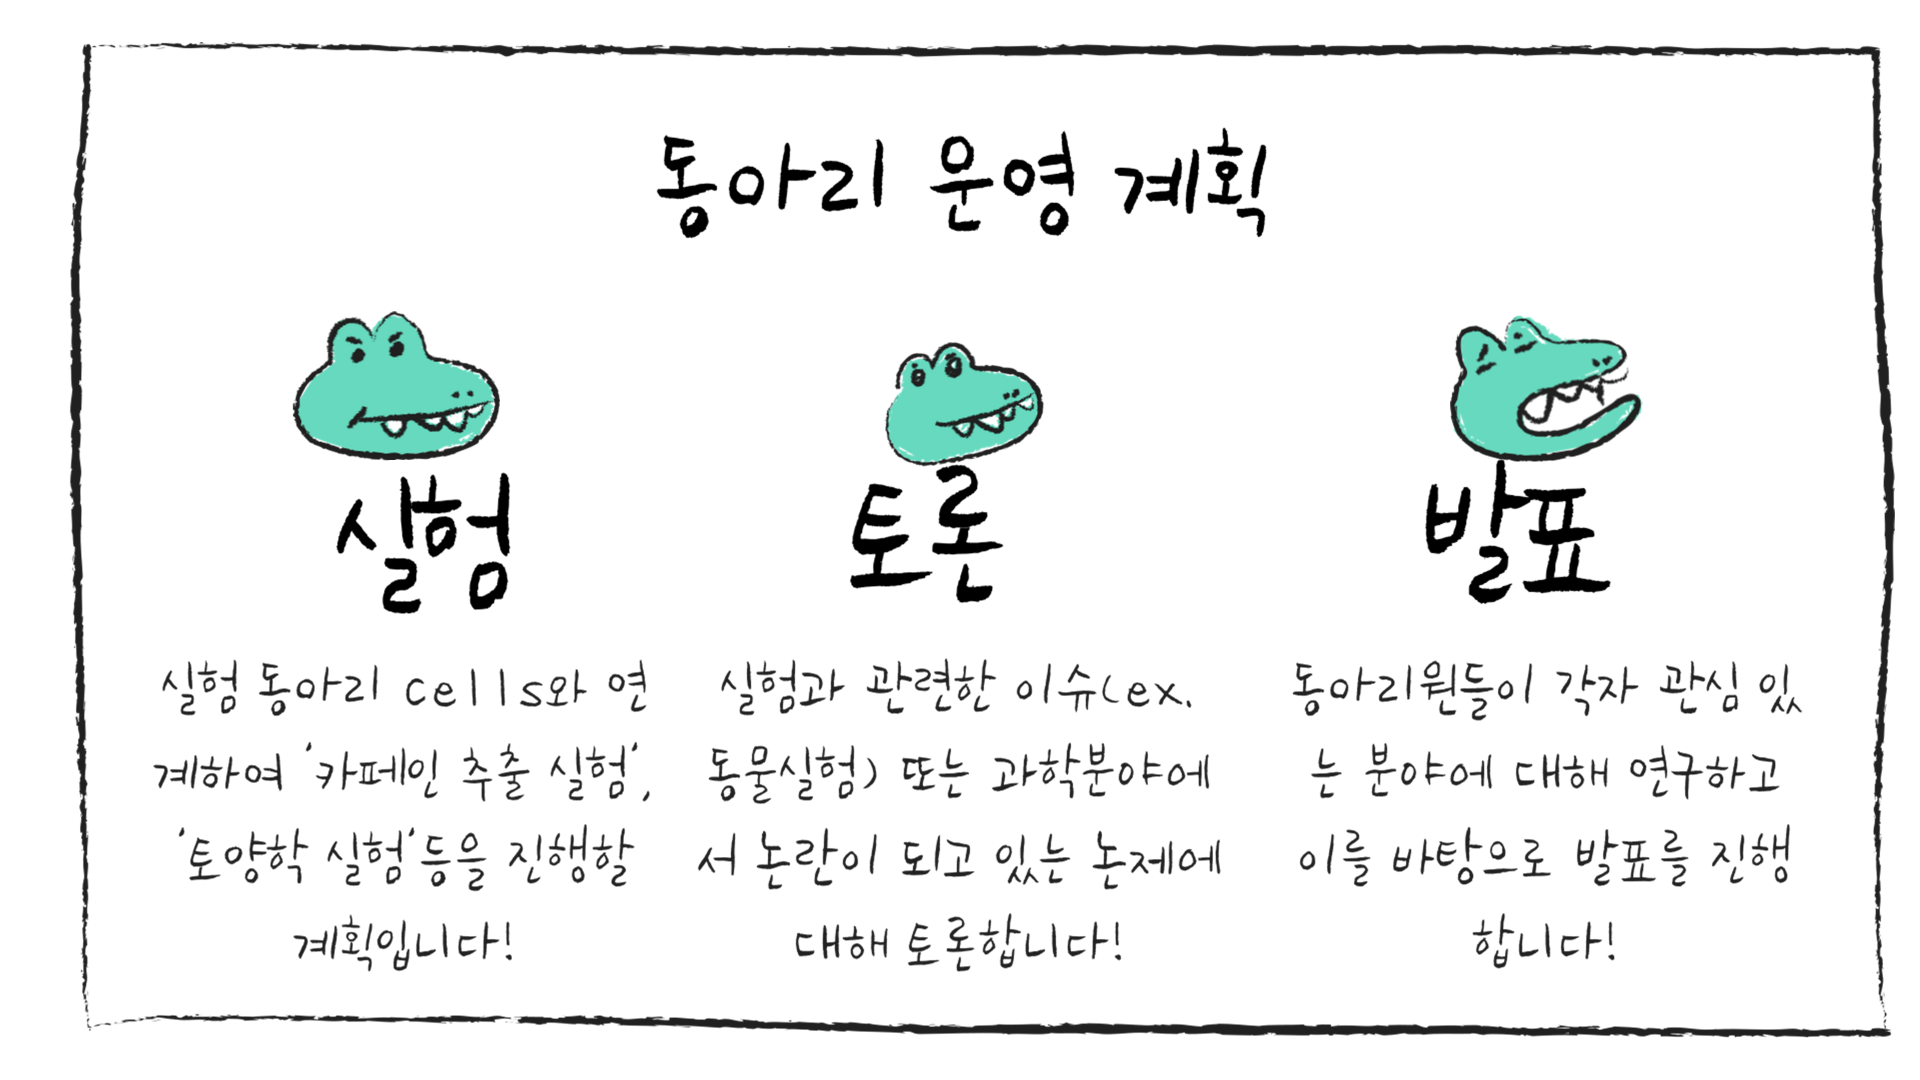 동아리 운영 계획
실험
실험 동아리 cells와 연
계하여 '카페인 추출 실험',
'토양학 실험'등을 진행할
계획입니다!
토론
실험과 관련한 이슈(ex.
동물실험) 또는 과학분야에
서 논란이 되고 있는 논제에
대해 토론합니다!
발표
동아리원들이 각자 관심 있
는 분야에 대해 연구하고
이를 바탕으로 발표를 진행
합니다!